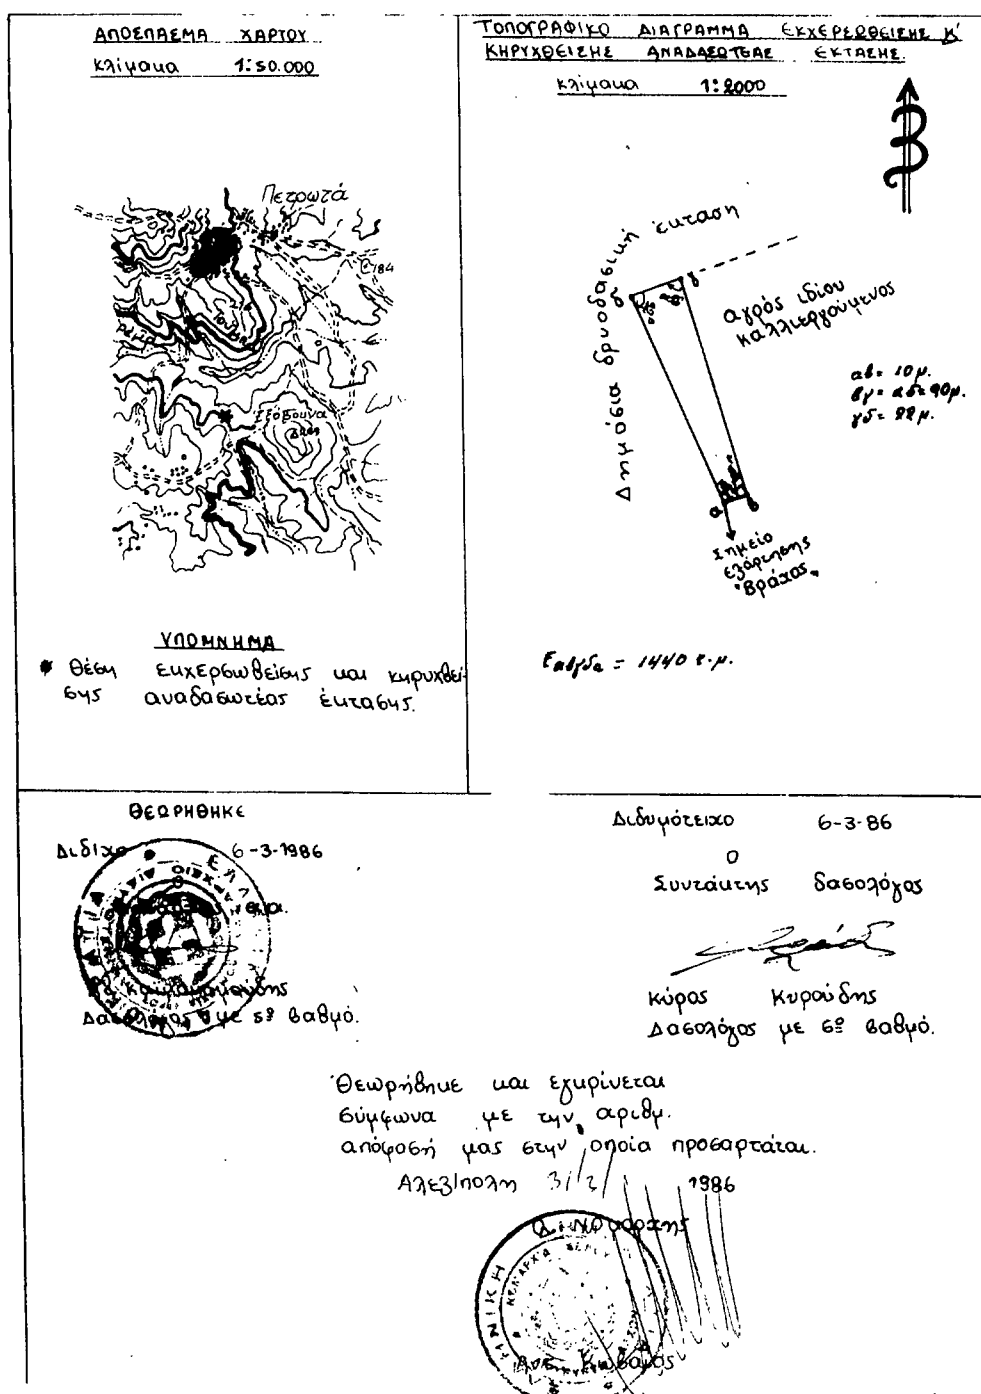 ΑΠΟΣΠΑΣΜΑ ΧΑΡΤΟΥ
κλίμακα 1:50.000
Πετρωτά
184
Εξόβουνα
ΥΠΟΜΝΗΜΑ
* Θέση εκχερσωθείσης και κηρυχθεί-
σης αναδασωτέας έκτασης.
ΤΟΠΟΓΡΑΦΙΚΟ ΔΙΑΓΡΑΜΜΑ ΕΚΧΕΡΣΩΘΕΙΣΗΣ Κ'
ΚΗΡΥΧΘΕΙΣΗΣ ΑΝΑΔΑΣΩΤΕΑΣ ΕΚΤΑΣΗΣ.
κλίμακα 1:2000
Δημόσια δρυοδασική έκταση
δ γ
αγρός ιδίου
καλλιεργούμενος
αβ= 10μ.
βγ= αδ= 90μ.
γδ= 22μ.
α β
Σημείο
εξάρτησης
"Βράχος"
Εαβγδα = 1440 τ.μ.
ΘΕΩΡΗΘΗΚΕ
Διδ/χο 6-3-1986
Δασολόγος με 5º βαθμό.
Διδυμότειχο 6-3-86
Ο
Συντάκτης δασολόγος
Κύρος Κυρούδης
Δασολόγος με 6º βαθμό.
Θεωρήθηκε και εγκρίνεται
σύμφωνα με την αριθμ.
απόφοσή μας στην οποία προσαρτάται.
Αλεξ/πολη 3/2/ 1986
Ο Νομάρχης